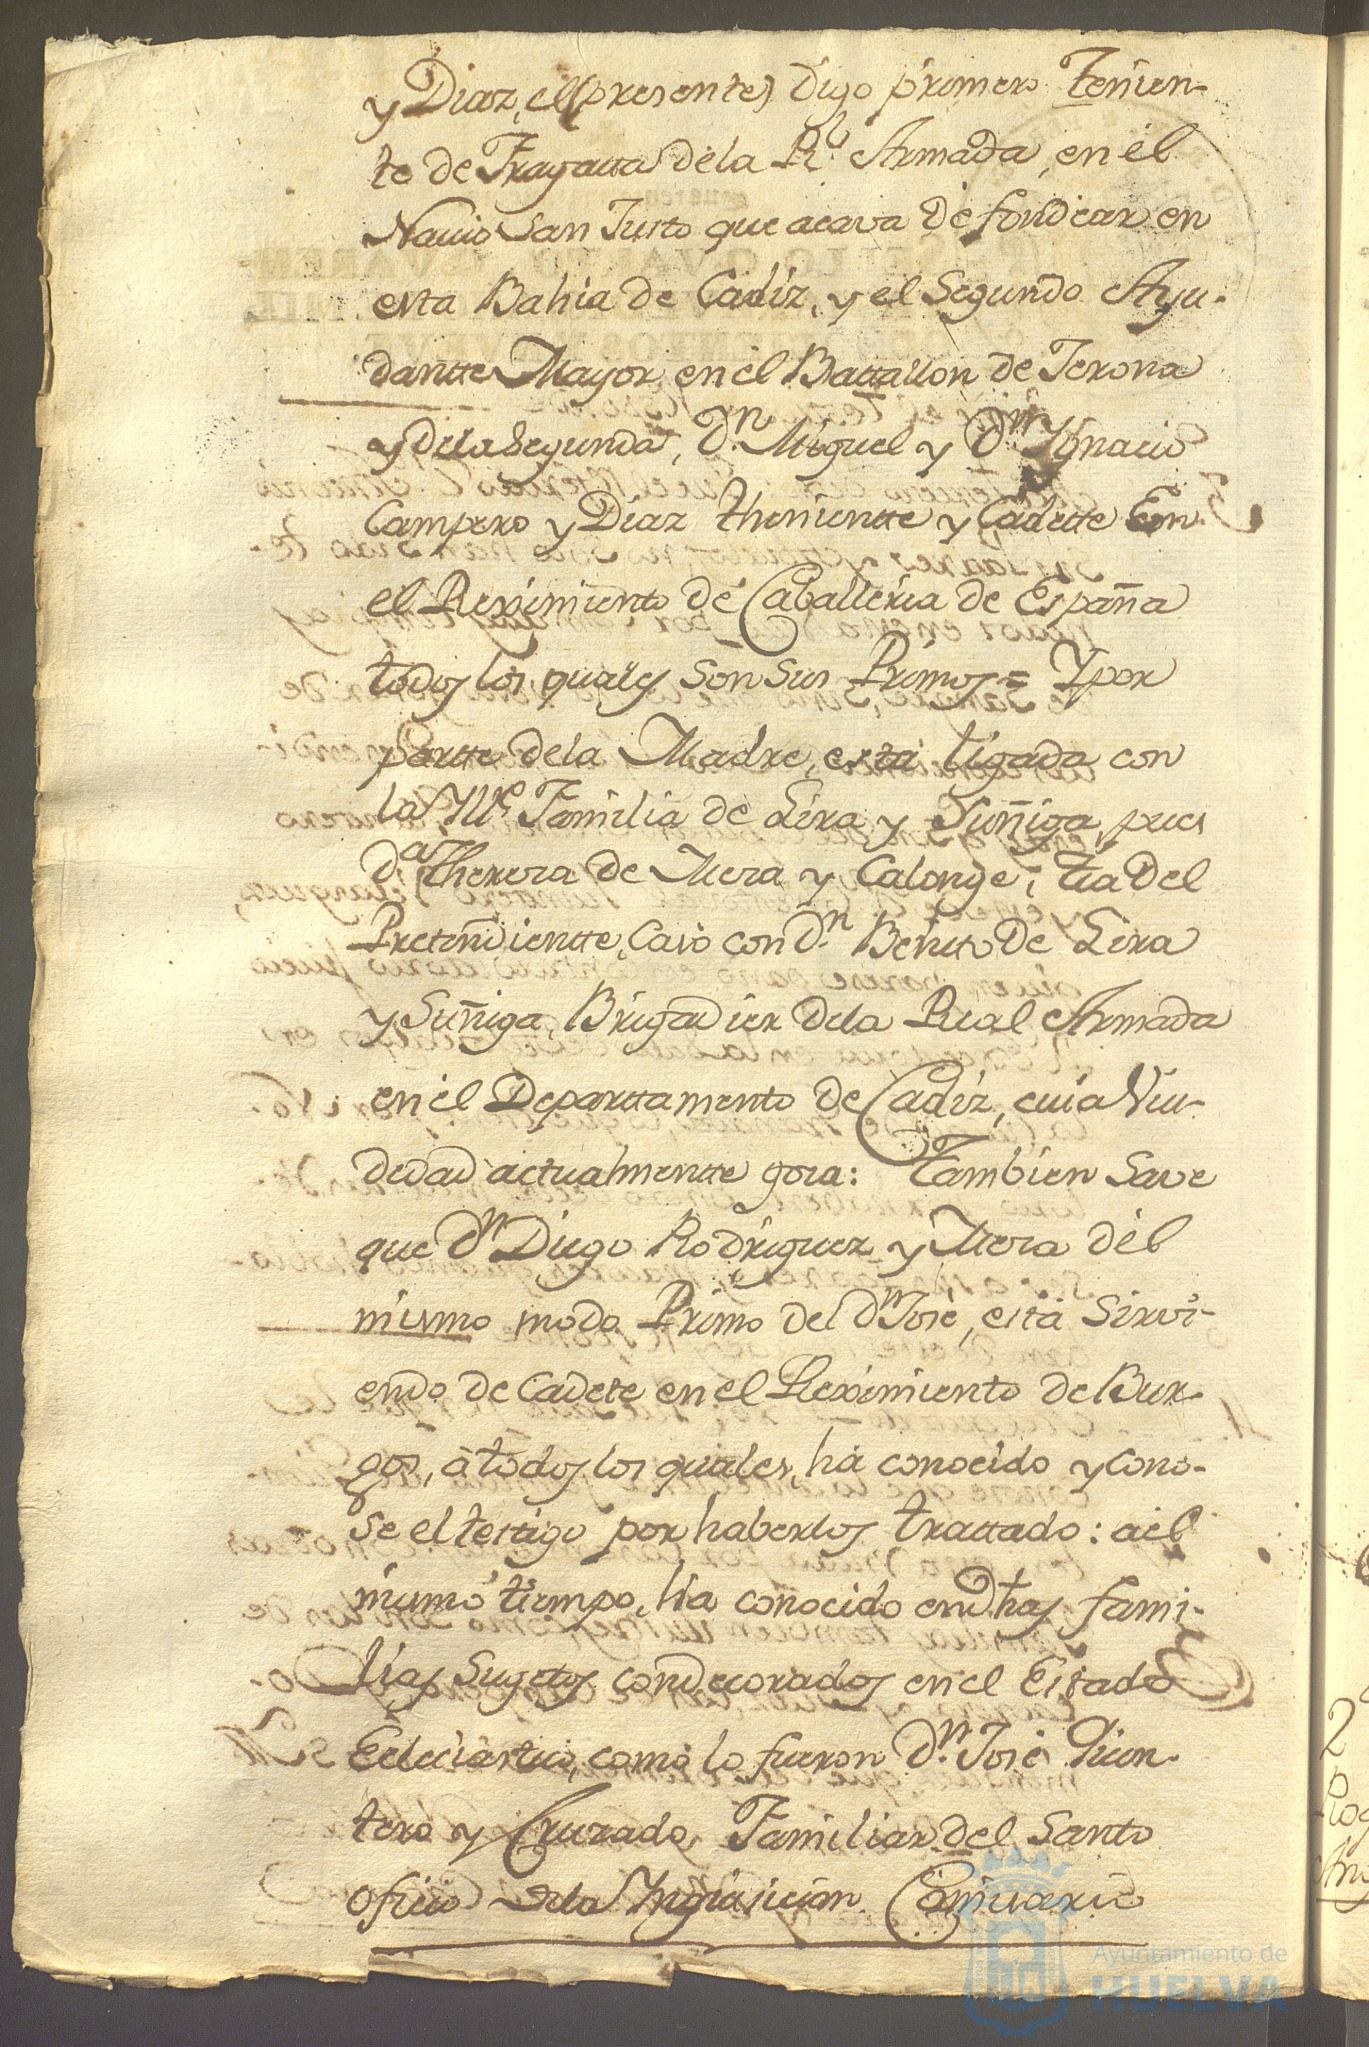 y Diaz, el (presente) digo primero Tenien-
te de Fragatta dela Rl. Armada, en el
Navio San Justo que acava de fondear en
esta Bahia de Cadiz, y el Segundo Ayu-
dantte Mayor en el Battallon de Jerona
y dela Segunda, Dn. Miguel y Dn Ygnacio
Campero y Diaz theniente y Cadette En
el Reximiento de Caballeria de España
todos los quales Son Sus Primos = Y por
partte dela Madre, está ligada con
la Ylle. Familia de Lira y Suñiga, pues
Da. Theresa de Mora y Calonge, tia del
Pretendientte, Casó con Dn. Benito de Lira
y Suñiga, Brigadier dela Real Armada
en el Departtamento de Cadiz, cuia Viu-
dedad actualmentte gosa: Tambien Save
que Dn Diego Rodriguez y Mora del
mismo modo Primo del Dn José, está Sirvi-
endo de Cadete en el Reximiento de Bur-
gos, á todos los quales, ha conocido y cono-
se el testigo por haberlos trattado: a el
mismo tiempo, ha conocido en dhas fami-
lias Sugetos condecorados en el Estado
Eclesiastico, como lo fueron Dn. José Quin-
tero y Cruzado, Familiar del Santo
Oficio dela Ynquisicion Comisario
Ayuntamiento de
HUELVA